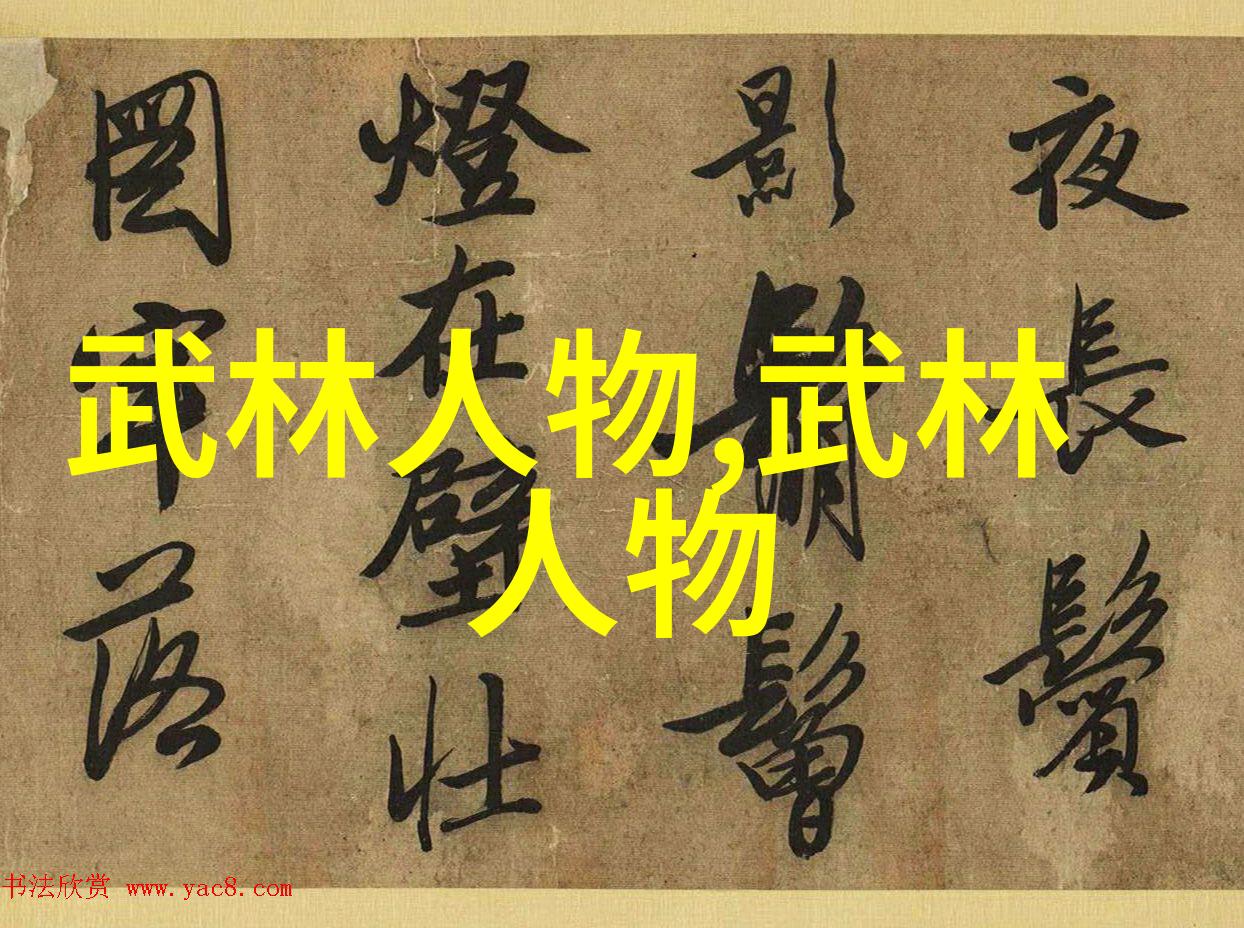 武林人物,武林
人物
夜長鬢
影鬅鬙
燈在壁壮
圖牢落
书法欣赏 www.yac8.com